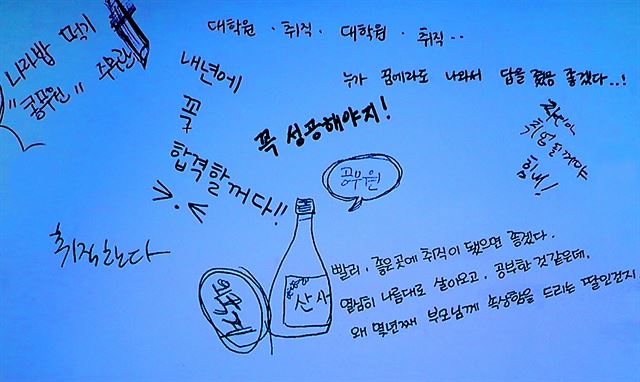 나라밥 먹기
"공무원" 주무관
대학원 · 취직 · 대학원 · 취직..
누가 꿈에라도 나와서 답을 줬음 좋겠다..!
내년에
꼭
합격할꺼다!!
꼭 성공해야지!
취업될꺼야
힘내!
공무원
취직한다
산사
빨리, 좋은곳에 취직이 됐으면 좋겠다.
열심히 나름대로 살아오고, 공부한 것 같은데,
왜 몇년째 부모님께 속상함을 드리는 딸인건지